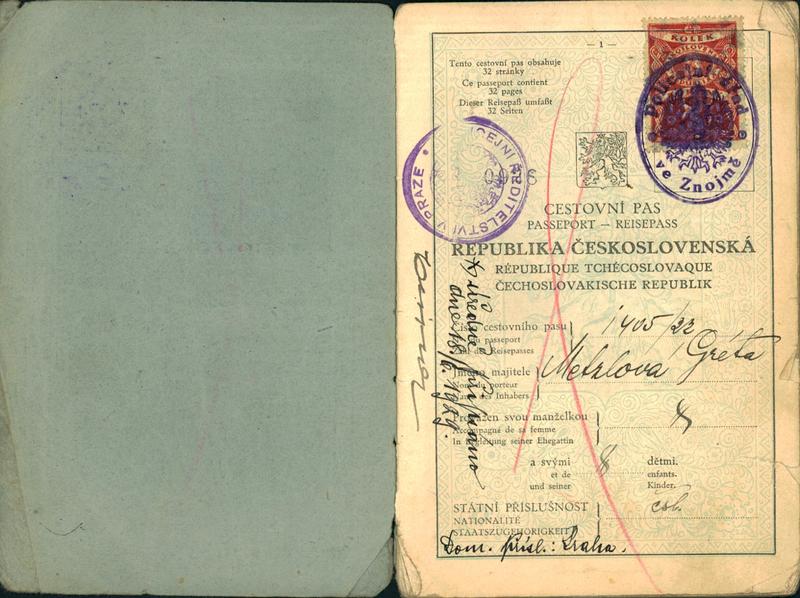 — 1 —
Tento cestovní pas obsahuje
32 stránky
Ce passeport contient
32 pages
Dieser Reisepaß umfaßt
32 Seiten
KOLEK
ve Znojmě
ŘEDITELSTVÍ V PRAZE
CESTOVNÍ PAS
PASSEPORT — REISEPASS
REPUBLIKA ČESKOSLOVENSKÁ
RÉPUBLIQUE TCHÉCOSLOVAQUE
ČECHOSLOVAKISCHE REPUBLIK
cestovního pasu 1405/22
passeport
des Reisepasses
Jméno majitele Metzlova Gréta
Nom du porteur
Name des Inhabers
Provázen svou manželkou
Accompagné de sa femme
In Begleitung seiner Ehegattin
a svými dětmi.
et de enfants.
und seiner Kinder.
STÁTNÍ PŘÍSLUŠNOST čsl.
NATIONALITÉ
STAATSZUGEHÖRIGKEIT
Dom. přísl.: Praha.
dne 18./6. 1929.